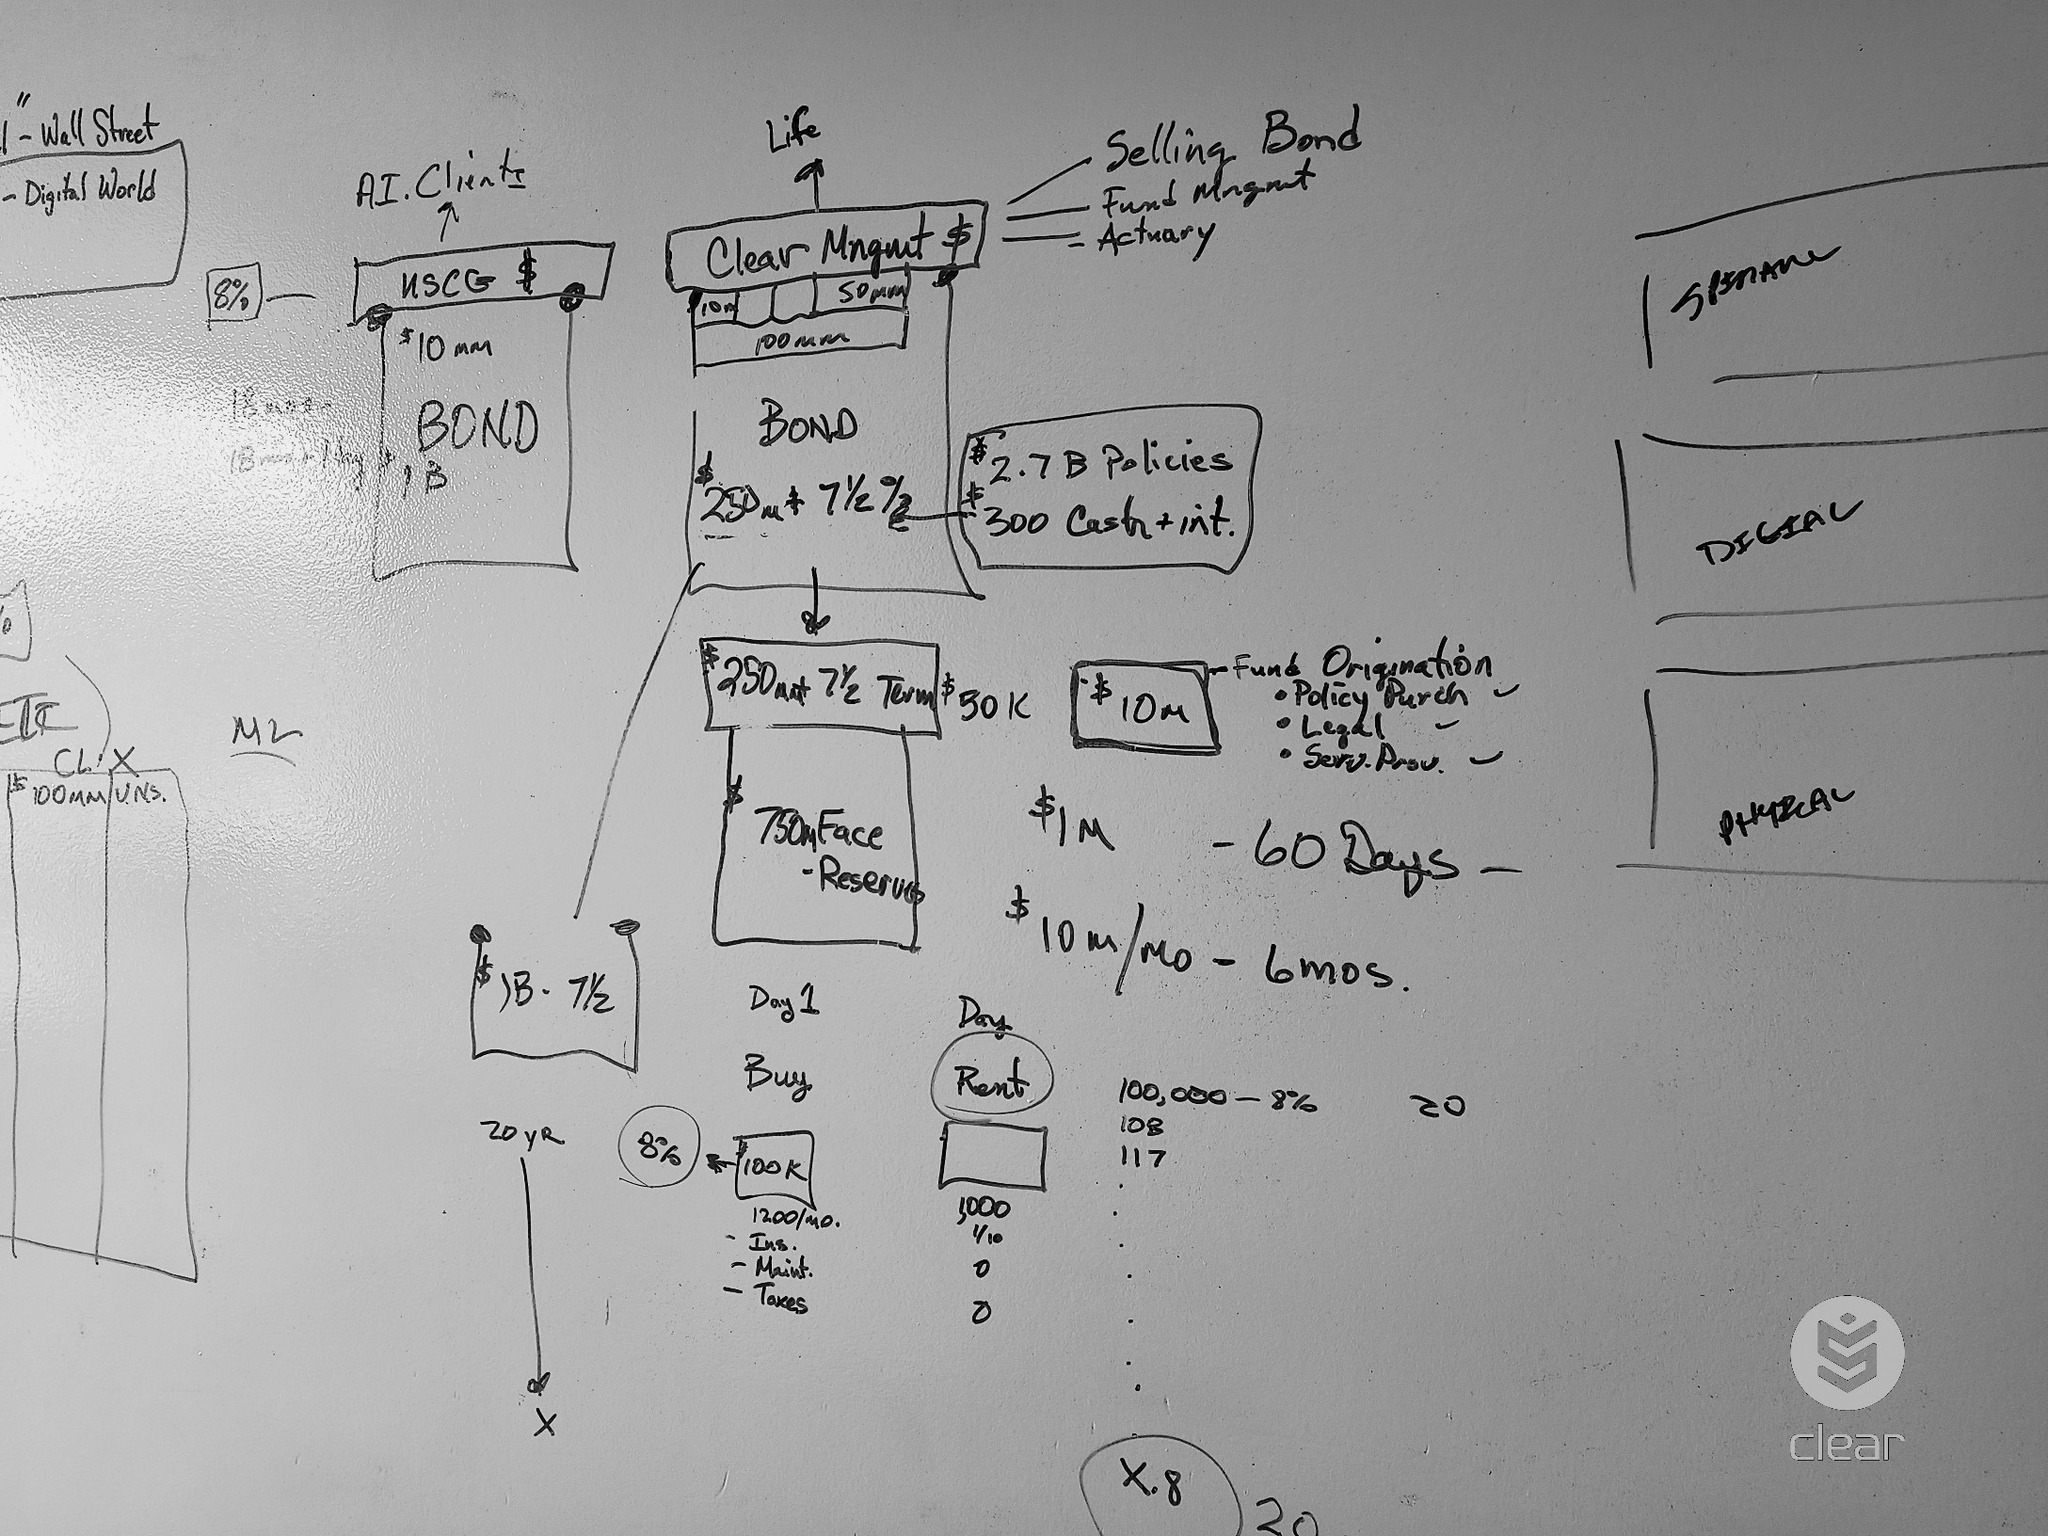 - Wall Street
- Digital World
8%
A.I. Clients
USCG $
$10 mm
BOND
1B
Life
Clear Mngmt $
Selling Bond
Fund Mngmt
- Actuary
10m
50mm
100mm
BOND
$250m + 7½ %
$2.7 B Policies
$300 Cash + int.
$250mm + 7½ Term
$50K
$750m Face
- Reserves
$10m
- Fund Origination
• Policy Purch
• Legal
• Serv. Prov.
$1M - 60 Days -
$10m/mo - 6mos.
$1B - 7½
20 yR
X
Day 1
Buy
8%
$100K
1200/mo.
- Ins.
- Maint.
- Taxes
Day
Rent
1,000
1/10
0
0
100,000 - 8% 20
108
117
X.8
20
M2
CLX
$100mm
UNS.
DIGIAL
PHYICAL
clear